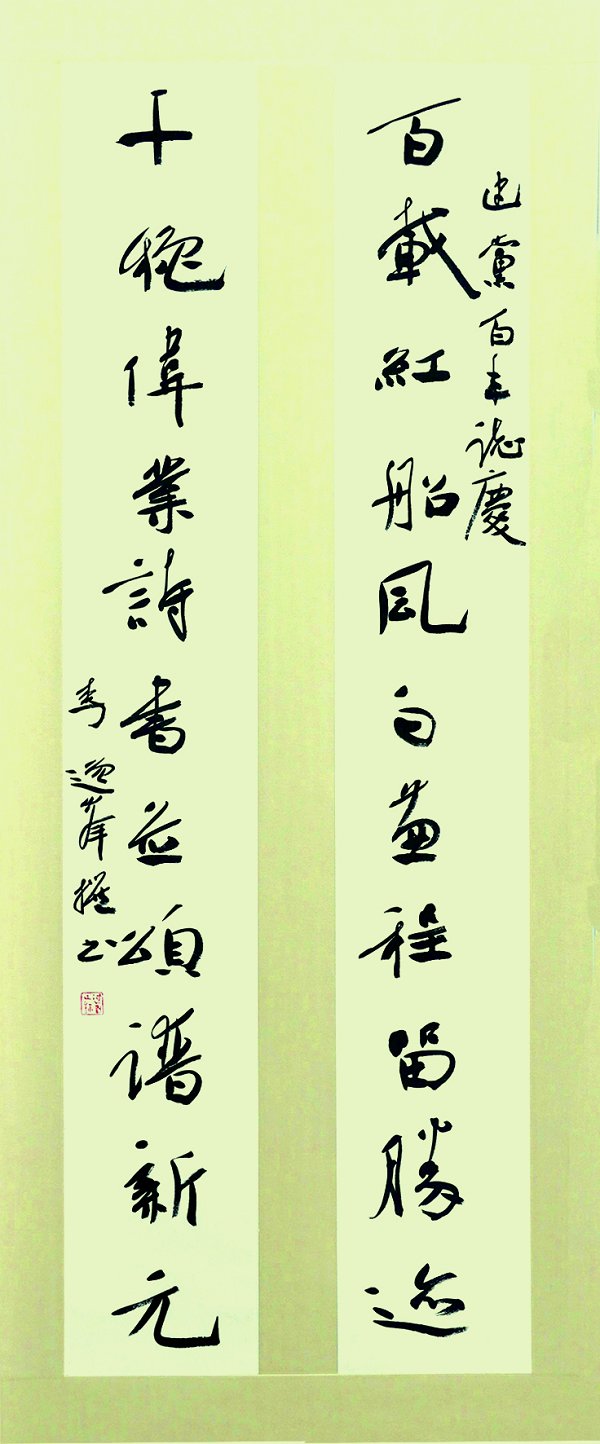 建黨百年誌慶
百載紅船風雨兼程留勝迹
十秩偉業詩書並頌譜新元
李逸峯撰书